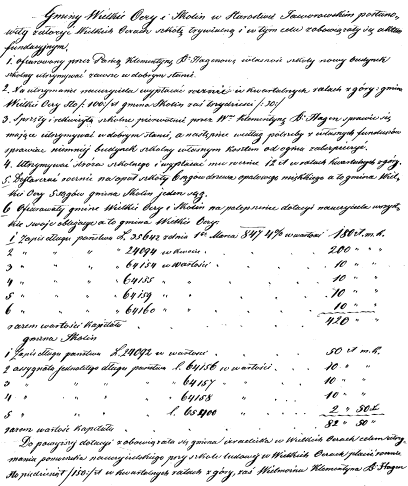 Gminy Wielkie Oczy i Skolin w Starostwie Jaworowskim postano-
wiły założyć w Wielkich Oczach szkołę trywialną i w tym celu zobowiązały się aktem
fundacyjnym.
1. ofiarowany przez Panią Klementynę B. Hagenową własność szkoły nowy budynek
szkolny utrzymywać zawsze w dobrym stanie.
2. Na utrzymanie nauczyciela wypłacać rocznie w kwartalnych ratach z góry; gmina
Wielkie Oczy sto /:100:/ zł gmina Skolin zaś trzydzieści /:30:/
3. Sprzęty i rekwizyta szkolne pierwotnie przez Wną Klementynę B. Hagen sprawić się
mające utrzymywać w dobrym stanie, a następnie według potrzeby z własnych funduszów
sprawiać niemniej budynek szkolny własnym kosztem od ognia zabezpieczyć.
4. Utrzymywać stróża szkolnego i wypłacać mu rocznie 12 zł w ratach kwartalnych z góry.
5. Dostarczać rocznie na opał szkoły 6 sągów drzewa opałowego miękkiego a to gmina Wiel-
kie Oczy 5 sągów gmina Skolin jeden sąg.
6. Ofiarowały gminy Wielkie Oczy i Skolin na polepszenie dotacyi nauczyciela wszyst-
kie swoje obligacye a to gmina Wielkie Oczy:
1 Zapis długu państwa L. 35642 z dnia 1go Marca 847 4% w wartości 180 zł m.k.
2 " " " " 24094 w kwocie . . 200 " "
3 " " " " 64154 w wartości . . 10 " "
4 " " " " 64155 " . . 10 " "
5 " " " " 64159 " . . 10 " "
6 " " " " 64160 " . . 10 " "
razem wartość kapitału 420 " "
gmina Skolin
1 Zapis długu państwa L. 24092 w wartości . . 50 zł m.k.
2 assygnata jednolitego długu państwa l. 64156 w wartości . 10 " "
3 " " " " 64157 " . . 10 " "
4 " " " " 64158 " . . 10 " "
5 " " " l. 65400 . . 2 " 50 k.
razem wartość kapitału 82 " 50 "
Do powyższej dotacyi zobowiązała się gmina izraelicka w Wielkich Oczach celem utrzy-
mania pomocnika nauczycielskiego przy szkole ludowej w Wielkich Oczach płacić rocznie
sto pięćdziesiąt /:150:/ zł w kwartalnych ratach z góry, zaś Wielmożna Klementyna B. Hagen